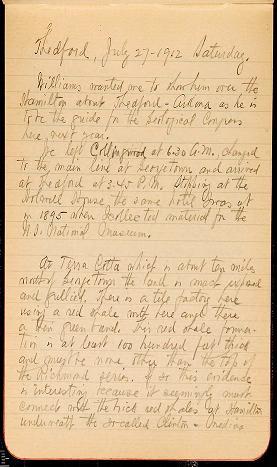 Thedford, July 27-1912 Saturday.
Williams wanted me to show him over the
Hamilton about Thedford - Arkona as he is
to be the guide for the Geological Congress
here next year.
We left Collingwood at 6:30 A.M., changed
to the main line at Georgetown and arrived
at Thedford at 3:45 P.M. Stopping at the
House, the same hotel I was at
in 1895 when I collected material for the
U.S. National Museum.
At Terra Cotta which is about ten miles
north of Georgetown the land is much exposed
and gullied. There is a tile factory here
using a red shale with here and there
a thin green band. This red shale forma-
tion is at least 100 hundred feet thick
and must be none other than the top of
the Richmond series. If so this evidence
is interesting because it seemingly must
connect with the thick red shales at Hamilton
underneath the so-called Clinton - Medina